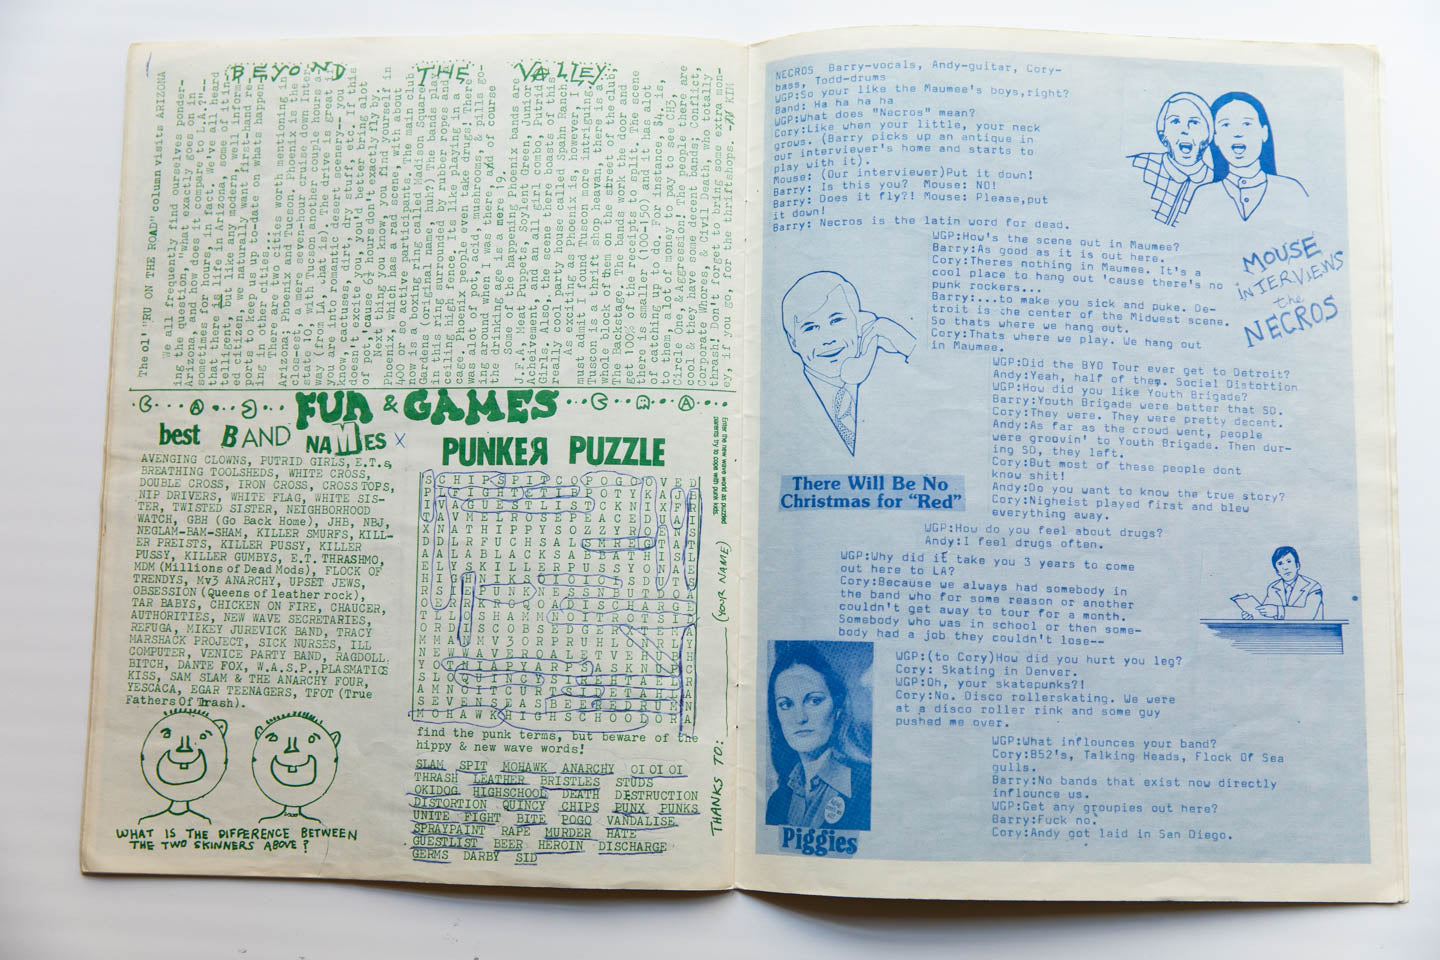 BEYOND THE VALLEY
The ol' "RU ON THE ROAD" column visits ARIZONA
We all frequently find ourselves ponder-
ing the question, "what exactly goes on in
Arizona, and how does it compare to L.A.?"--
sometimes for hours, in fact. We've all heard
that there is life in Arizona, some of it in-
telligent, but like any modern, well inform-
ed citizen, we naturally want first-hand re-
ports to keep us up-to-date on what's happen-
ing in other cities...
There are two cities worth mentioning in
Arizona; Phoenix and Tucson. Phoenix is the
clos-est, a mere seven-hour cruise down Inter-
state 10, with Tucson another couple hours a-
way (from LA, that is). The drive is great if
you are into romantic desert scenery--you
know, cactuses, dirt, dry stuff, etc. If this
doesn't excite you, you'd better bring alot
of pot,'cause 6½ hours don't exactly fly by
Next thing you know, you find yourself in
Phoenix, which has a rad scene, with about
400 or so active participants. The main club
now is a boxing ring called Madison Square
Gardens (original name, huh?) The bands play
in this ring surrounded by rubber ropes and a
ceiling-high fence. Its like playing in a
cage. Phoenix people even take drugs! There
was alot of pot, acid, mushrooms, & pills go-
ing around when I was there, and of course
the drinking age is a mere 19.
Some of the happening Phoenix bands are
J.F.A, Meat Puppets, Soylent Green, Junior
Acheivement, & an all girl combo, Putrid
Girls. Also, the scene there boasts of this
really cool party house called Spahn Ranch.
As exciting as Phoenix is, however, I
must admit I found Tuscon more intriguing.
Tuscon is a thrift shop heavan, there is a
whole block of them on the street of the club
The Backstage. The bands work the door and
get 100% of the receipts to split. The scene
there is smaller (100-150) and it has alot
of catching up to do. For instance $4, is,
to them, alot of money to pay to see TSOL, H3,
Circle One, & Aggression! The people there are
cool & they have some decent bands; Conflict,
Corporate Whores, & Civil Death, who totally
thrash! Don't forget to bring some extra mon-
ey, if you go, for the thriftshops.
FUN & GAMES
best BAND NAMES
AVENGING CLOWNS, PUTRID GIRLS, E.T.s,
BREATHING TOOLSHEDS, WHITE CROSS,
DOUBLE CROSS, IRON CROSS, CROSS TOPS,
NIP DRIVERS, WHITE FLAG, WHITE SIS-
TER, TWISTED SISTER, NEIGHBORHOOD
WATCH, GBH (Go Back Home), JHB, NBJ,
NEGLAM-BAM-SHAM, KILLER SMURFS, KILL-
ER PREISTS, KILLER PUSSY, KILLER
PUSSY, KILLER GUMBYS, E.T. THRASHMO,
MDM (Millions of Dead Mods), FLOCK OF
TRENDYS, Mv3 ANARCHY, UPSET JEWS,
OBSESSION (Queens of leather rock),
TAR BABYS, CHICKEN ON FIRE, CHAUCER,
AUTHORITIES, NEW WAVE SECRETARIES,
REFUGA, MIKEY JUREVICK BAND, TRACY
MARSHACK PROJECT, SICK NURSES, ILL
COMPUTER, VENICE PARTY BAND, RAGDOLL
BITCH, DANTE FOX, W.A.S.P., PLASMATICS
KISS, SAM SLAM & THE ANARCHY FOUR,
YESCACA, EGAR TEENAGERS, TFOT (True
Fathers Of Thrash).
WHAT IS THE DIFFERENCE BETWEEN
THE TWO SKINNERS ABOVE?
PUNKER PUZZLE
Enter the new wave world as puzzled
parents try to cope with punk kids.
find the punk terms, but beware of the
hippy & new wave words!
SLAM SPIT MOHAWK ANARCHY OI OI OI
THRASH LEATHER BRISTLES STUDS
OKIDOG HIGHSCHOOL DEATH DESTRUCTION
DISTORTION QUINCY CHIPS PUNX PUNKS
UNITE FIGHT BITE POGO VANDALISE
SPRAYPAINT RAPE MURDER HATE
GUESTLIST BEER HEROIN DISCHARGE
GERMS DARBY SID
THANKS TO: (YOUR NAME)
NECROS Barry-vocals, Andy-guitar, Cory-
bass, Todd-drums
WGP:So your like the Maumee's boys,right?
Band: Ha ha ha ha
WGP:What does "Necros" mean?
Cory:Like when your little, your neck
grows. (Barry picks up an antique in
our interviewer's home and starts to
play with it).
Mouse: (Our interviewer)Put it down!
Barry: Is this you? Mouse: NO!
Barry: Does it fly?! Mouse: Please,put
it down!
Barry: Necros is the latin word for dead.
MOUSE
INTERVIEWS
the
NECROS
WGP:How's the scene out in Maumee?
Barry:As good as it is out here.
Cory:Theres nothing in Maumee. It's a
cool place to hang out 'cause there's no
punk rockers...
Barry:...to make you sick and puke. De-
troit is the center of the Midwest scene.
So thats where we hang out.
Cory:Thats where we play. We hang out
in Maumee.
WGP:Did the BYO Tour ever get to Detroit?
Andy:Yeah, half of them. Social Distortion
WGP:How did you like Youth Brigade?
Barry:Youth Brigade were better that SD.
Cory:They were. They were pretty decent.
Andy:As far as the crowd went, people
were groovin' to Youth Brigade. Then dur-
ing SD, they left.
Cory:But most of these people dont
know shit!
Andy:Do you want to know the true story?
Cory:Nigheist played first and blew
everything away.
There Will Be No
Christmas for "Red"
WGP:How do you feel about drugs?
Andy:I feel drugs often.
WGP:Why did it take you 3 years to come
out here to LA?
Cory:Because we always had somebody in
the band who for some reason or another
couldn't get away to tour for a month.
Somebody who was in school or then some-
body had a job they couldn't lose--
WGP:(to Cory)How did you hurt you leg?
Cory: Skating in Denver.
WGP:Oh, your skatepunks?!
Cory:No. Disco rollerskating. We were
at a disco roller rink and some guy
pushed me over.
WGP:What influnces your band?
Cory:B52's, Talking Heads, Flock Of Sea
gulls.
Barry:No bands that exist now directly
influnce us.
WGP:Get any groupies out here?
Barry:Fuck no.
Cory:Andy got laid in San Diego.
Piggies